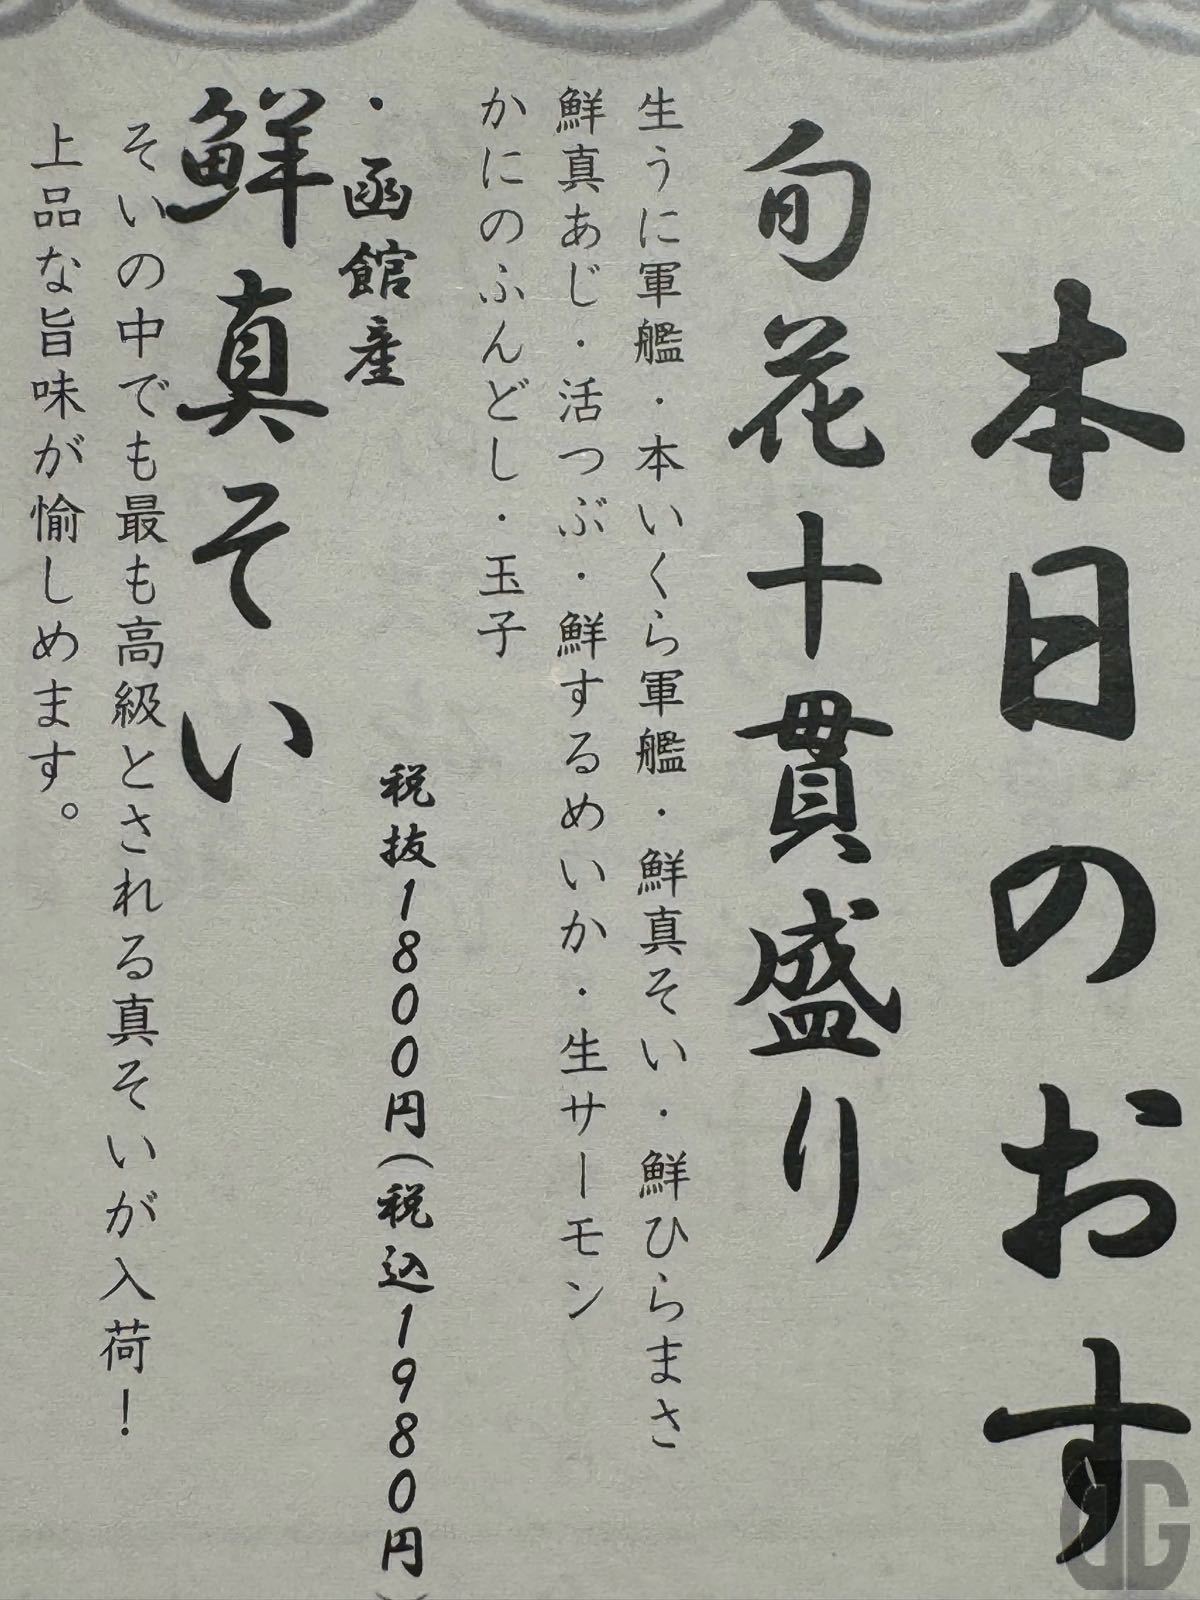 本日のおす
旬花十貫盛り
生うに軍艦・本いくら軍艦・鮮真そい・鮮ひらまさ
鮮真あじ・活つぶ・鮮するめいか・生サーモン
かにのふんどし・玉子
税抜1800円(税込1980円)
・函館産
鮮真そい
そいの中でも最も高級とされる真そいが入荷!
上品な旨味が愉しめます。